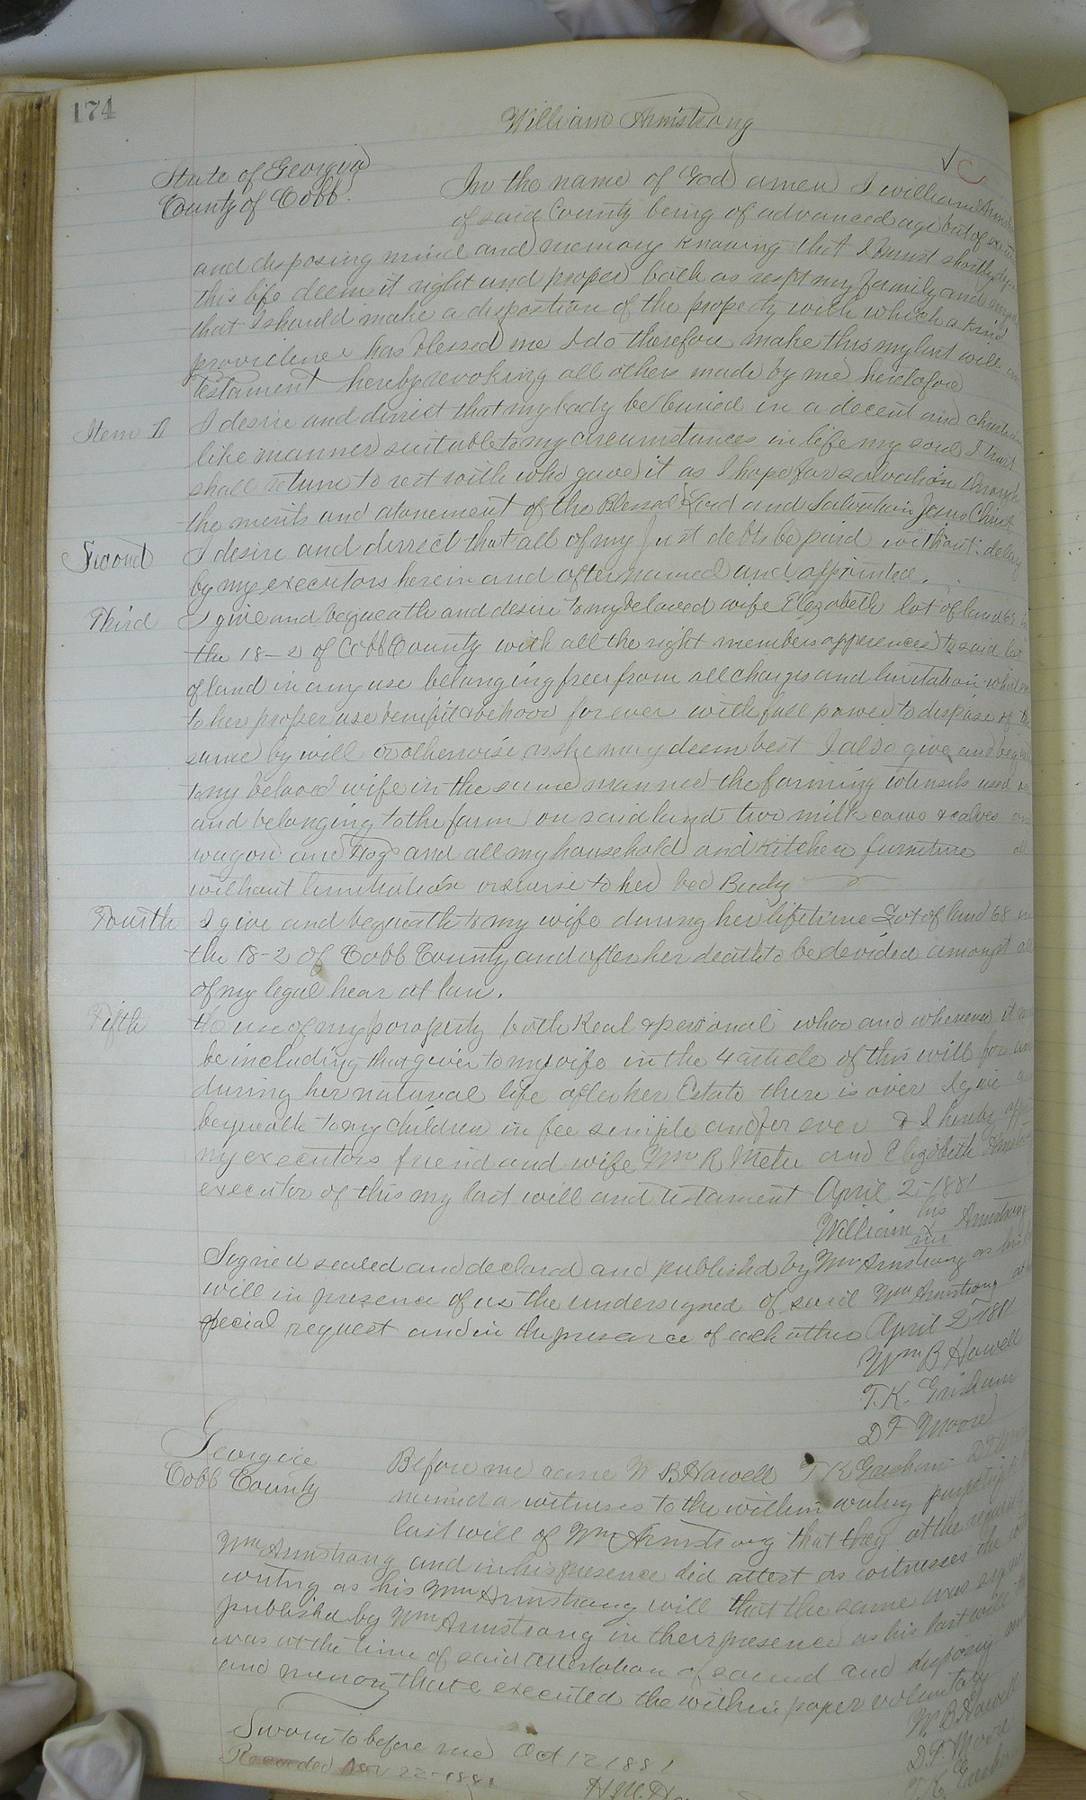 174
William Armstrong
State of Georgia
County of Cobb.
In the name of God amen I william
of said County being of advanced age but of
and disposing mind and memory knowing that I must shortly
this life deem it right and proper both as respt my family and
that I should make a disposition of the property with which a kind
providence has blessed me I do therefore make this my last will
Testament hereby revoking all others made by me heretofore
Item
I desire and direct that my body be buried in a decent and
like manner suitable to my circumstances in life my soul I trust
shall return to rest with who gave it as I hope for salvation through
the merits and atonement of the Blessed Lord and Jesus Christ
Second I desire and dirrect that all of my just debts be paid without delay
by my executors herein and after named and appointed.
Third I give and bequeath and desire to my beloved wife Elizabeth lot of land
the 18-2 of Cobb County with all the right members to said lot
of land in any use belonging free from all charges and limitation
to her proper use benefit & behoof for ever with full power to dispose of
same by will or otherwise as she may deem best I also give and
to my beloved wife in the same manner the farming utensils used
and belonging to the farm on said land two milk cows & calves
wagon and Hogs and all my household and Kitchen furniture
without limitation to her
Fourth I give and bequeath to my wife during her lifetime Lot of land 68
the 18-2 of Cobb County and after her death to be devided amongst
of my legal hear at law.
Fifth
use of my poropirty both Real & personal and whenever it
be including that given to my wife in the 4 article of this will for
during her natural life after her Estate there is over I give
bequeath to my children in fee simple and for ever & I hereby
my executors friend and wife Wm R and Elizabeth
executor of this my last will and testament April 2 - 1881
his
William X Armstrong
Signed sealed and declared and published by Wm Armstrong as his
will in presence of us the undersigned of said Wm Armstrong
special request and in the presence of each other April 2 1881
Wm B Howell
T. K. Grisham
D F Moore
Georgia
Cobb County
Before me came W B Howell T K Grisham
witnesses to the within
last will of Wm Armstrong that they at the
Wm Armstrong and in his presence did attest as witnesses the
writing as his Wm Armstrong will that the same was
published by Wm Armstrong in their presence as his last will
was at the time of said attestation of sound and disposing
and memory that executed the within paper voluntarily
W B Howell
D F Moore
T K
Sworn to before me Oct 12 1881
Recorded Nov 22 - 1881